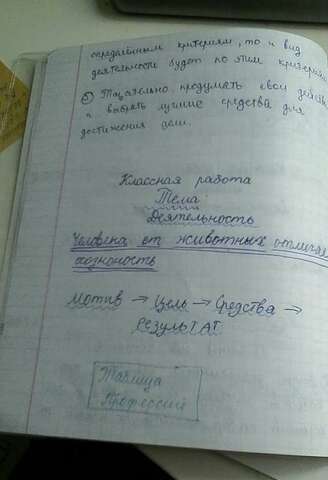 определённым критериям, то и вид
деятельности будет по этим критери
5) Тщательно продумать свои дейст
и выбрать лучшие средства для
достижения цели.
Классная работа
Тема
Деятельность
Человека от животных отличае
сознаность
мотив → Цель → Средства →
РезульТАТ
Таблица
Профессий